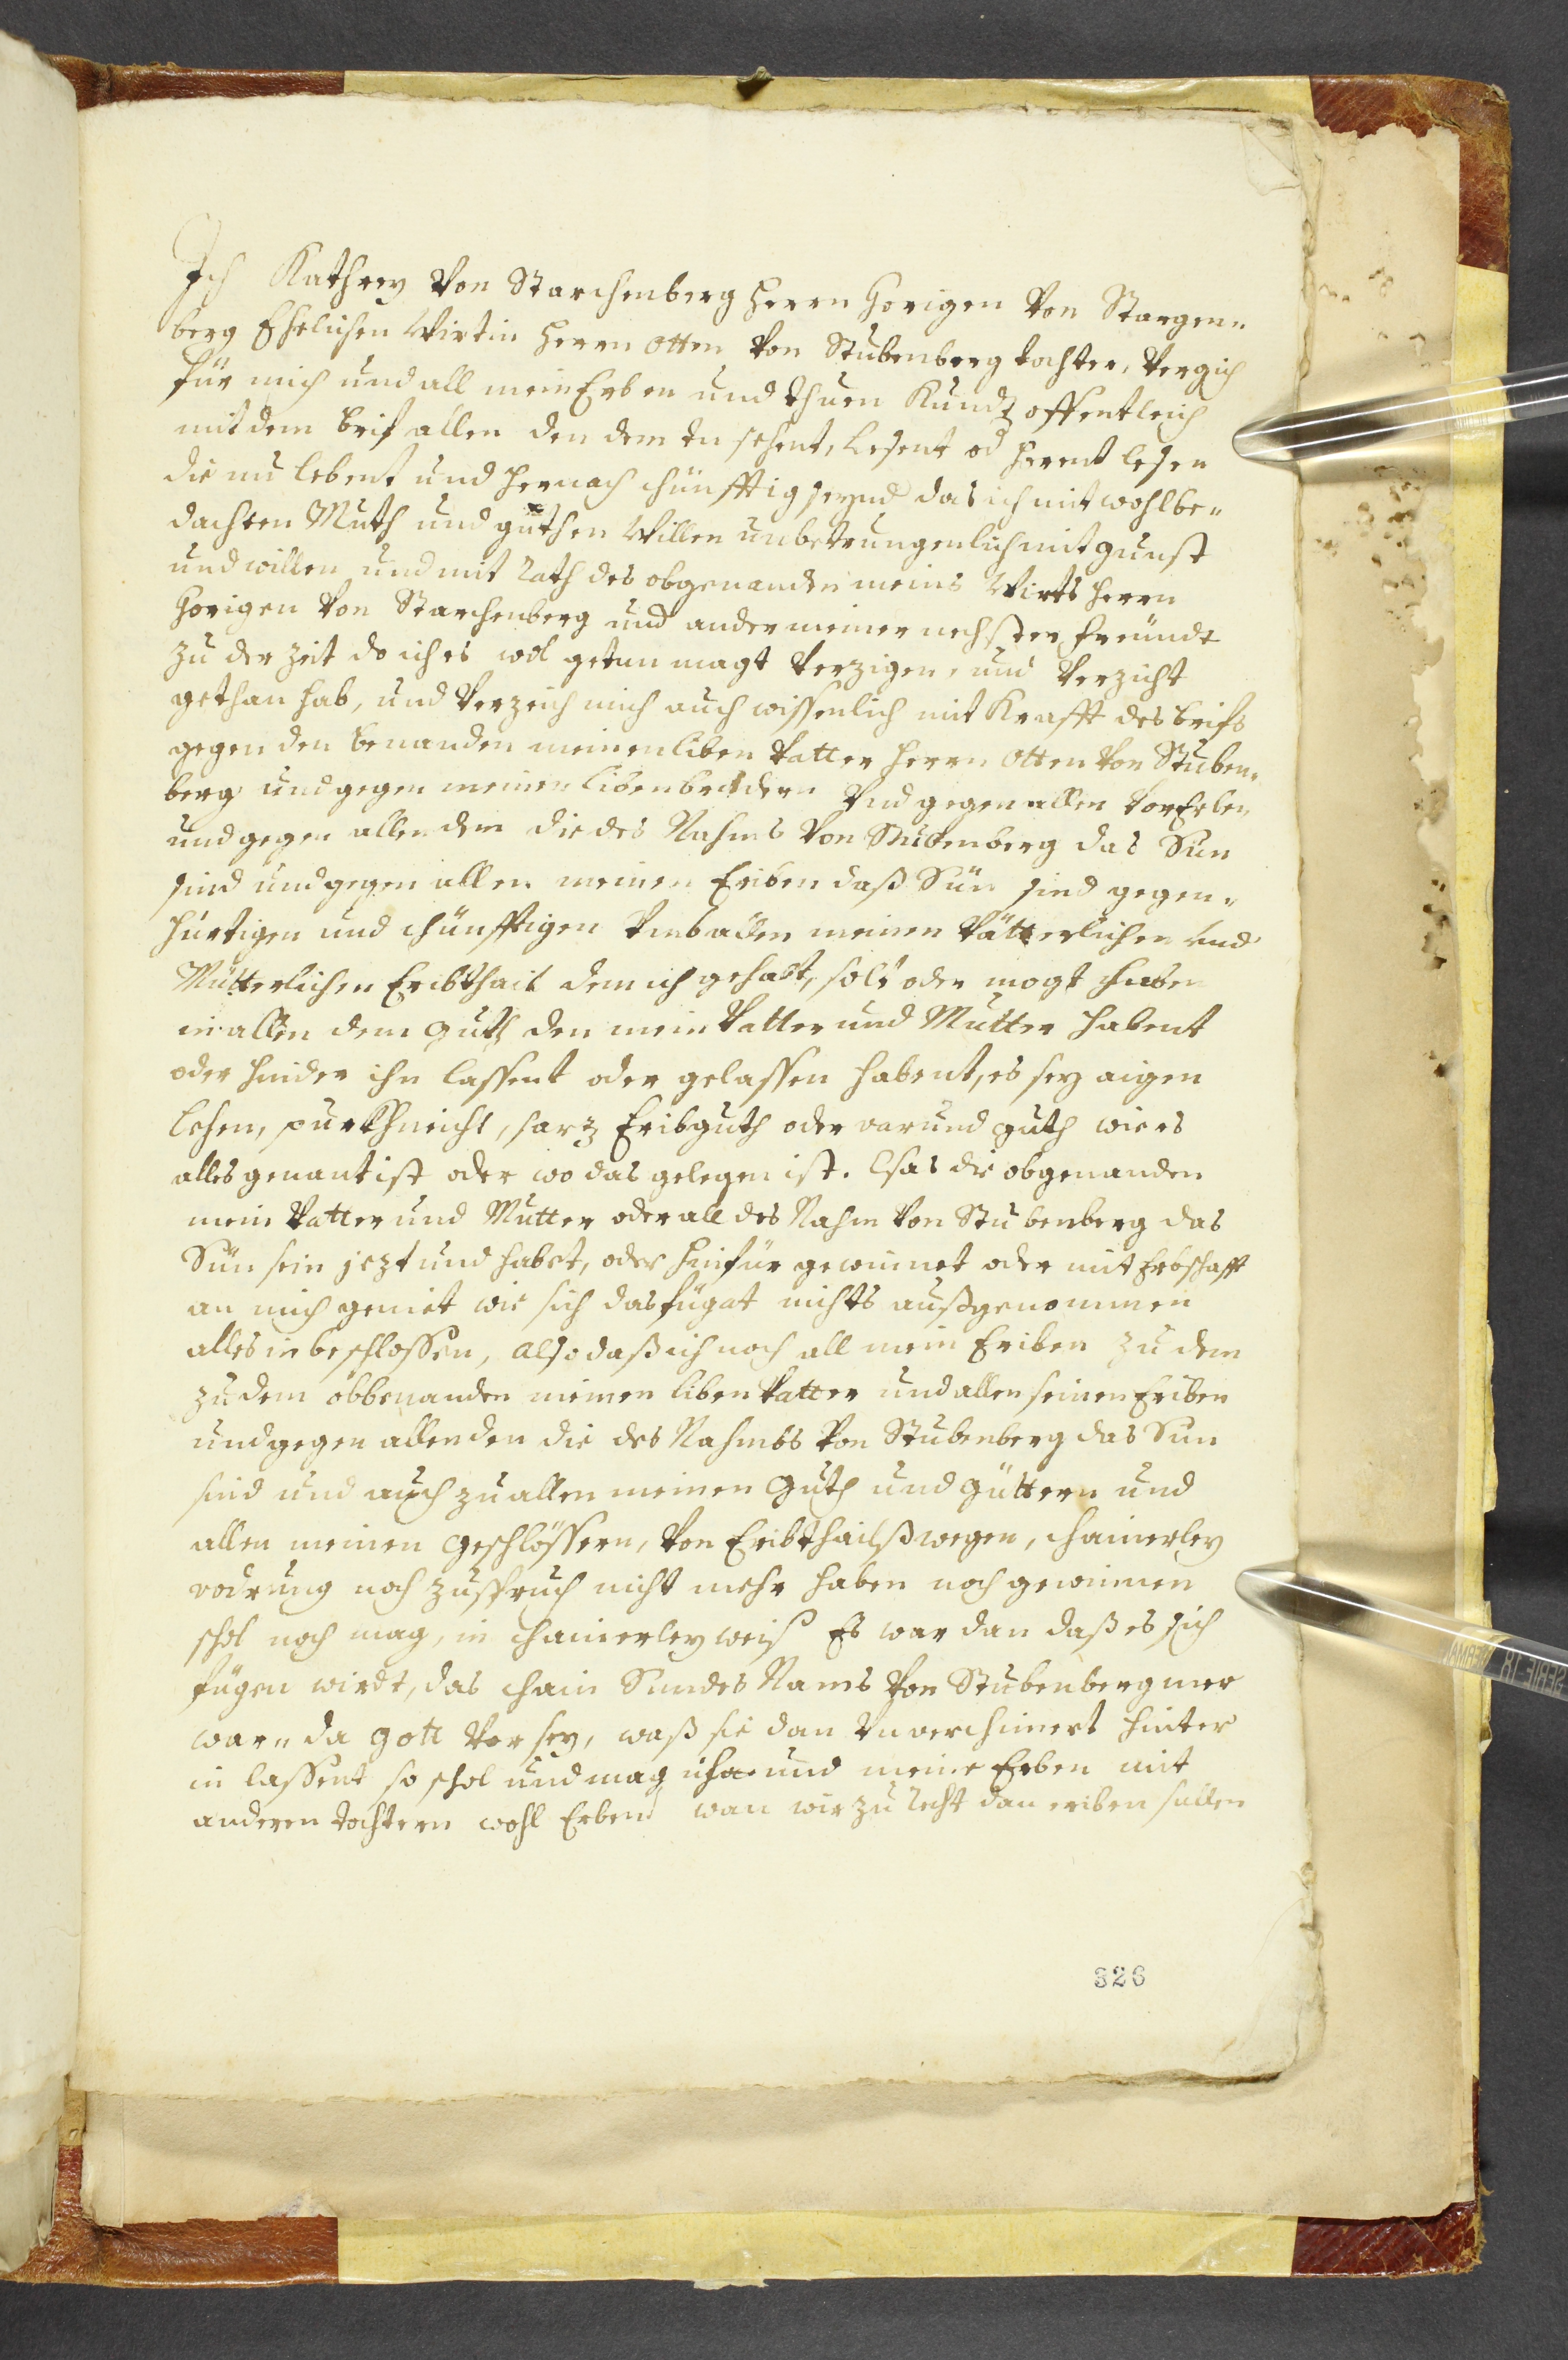 Ich Kathrey Von Starchenberg herrn Gorigen Von Stargen„
berg Ehelichen Wirtin herrn Otten Von Stubenberg tochter, Vergich
für mich und all mein Erben und thuen Kundt offentleich
mit dem brif allen den dem en sehent, Lesent od herent lesen
die nu lebent und hernach chünfftig seynd das ich mit wohlbe„
dachten Muth und guthen Willen unbetrungenlich mit gunst
und willen und mit rath des obgenanden meins Wirts herrn
Gorigen Von Starchenberg und ander meiner nechsten freündt
zu der zeit do ich es wol getun magt Verzigen, und Verzicht
gethan hab, und Verzeich mich auch wissenlich mit Krafft des brifs
gegen den benanden meinen liben Vatter herrn Otten Von Stuben„
berg und gegen meinen liben brudern Vnd gegen allen Vor Erben
und gegen allen dem die des Nahms Von Stubenberg das Sün
sind und gegen allen meinen Eriben daß Sün sind gegen„
hürtigen und chünfftigen Vmb allen meinen Vätterlichen und
Mütterlichen Eribthail dem ich gehabt, solt oder mogt haben
in allen dem guth den mein Vatter und Mutter habent
oder hinder ihn lassent oder gelassen habent, es sey aigen
lehen, purkhrecht, sarz Eribguth oder varund guth wie es
alles genant ist oder wo das gelegen ist. Was die obgenanden
mein Vatter und Mutter oder all des Nahm Von Stubenberg das
Sün sein jezt und habet, oder hinfür gewinnet oder mit Erbschafft
an mich geniet wie sich das fügat nichts außgenommen
alles in beschlossen, also daß ich noch all mein Eriben zu dem
zu dem obbenanden meinen liben Vatter und allen seinen Eriben
und gegen allen den die des Nahmbs Von Stubenberg das Sun
sind und auch zu allen meinen guth und güttern und
allen meinen geschlössern, Von Eribthailß wegen, chainerley
vodrung noch zuspruch nicht mehr haben noch gewinnen
schol noch mag, in chainerley weiß Es war dan daß es sich
fügen wirdt, das chain Sun des Nams Von Stubenberg mer
war„ da gott Vor sey, waß sie dan Vnverchimert hinter
in lassent so schol und mag ich und meine Erben mit
anderen tochtern wohl Erben wan wir zu recht dan eriben sullen
326